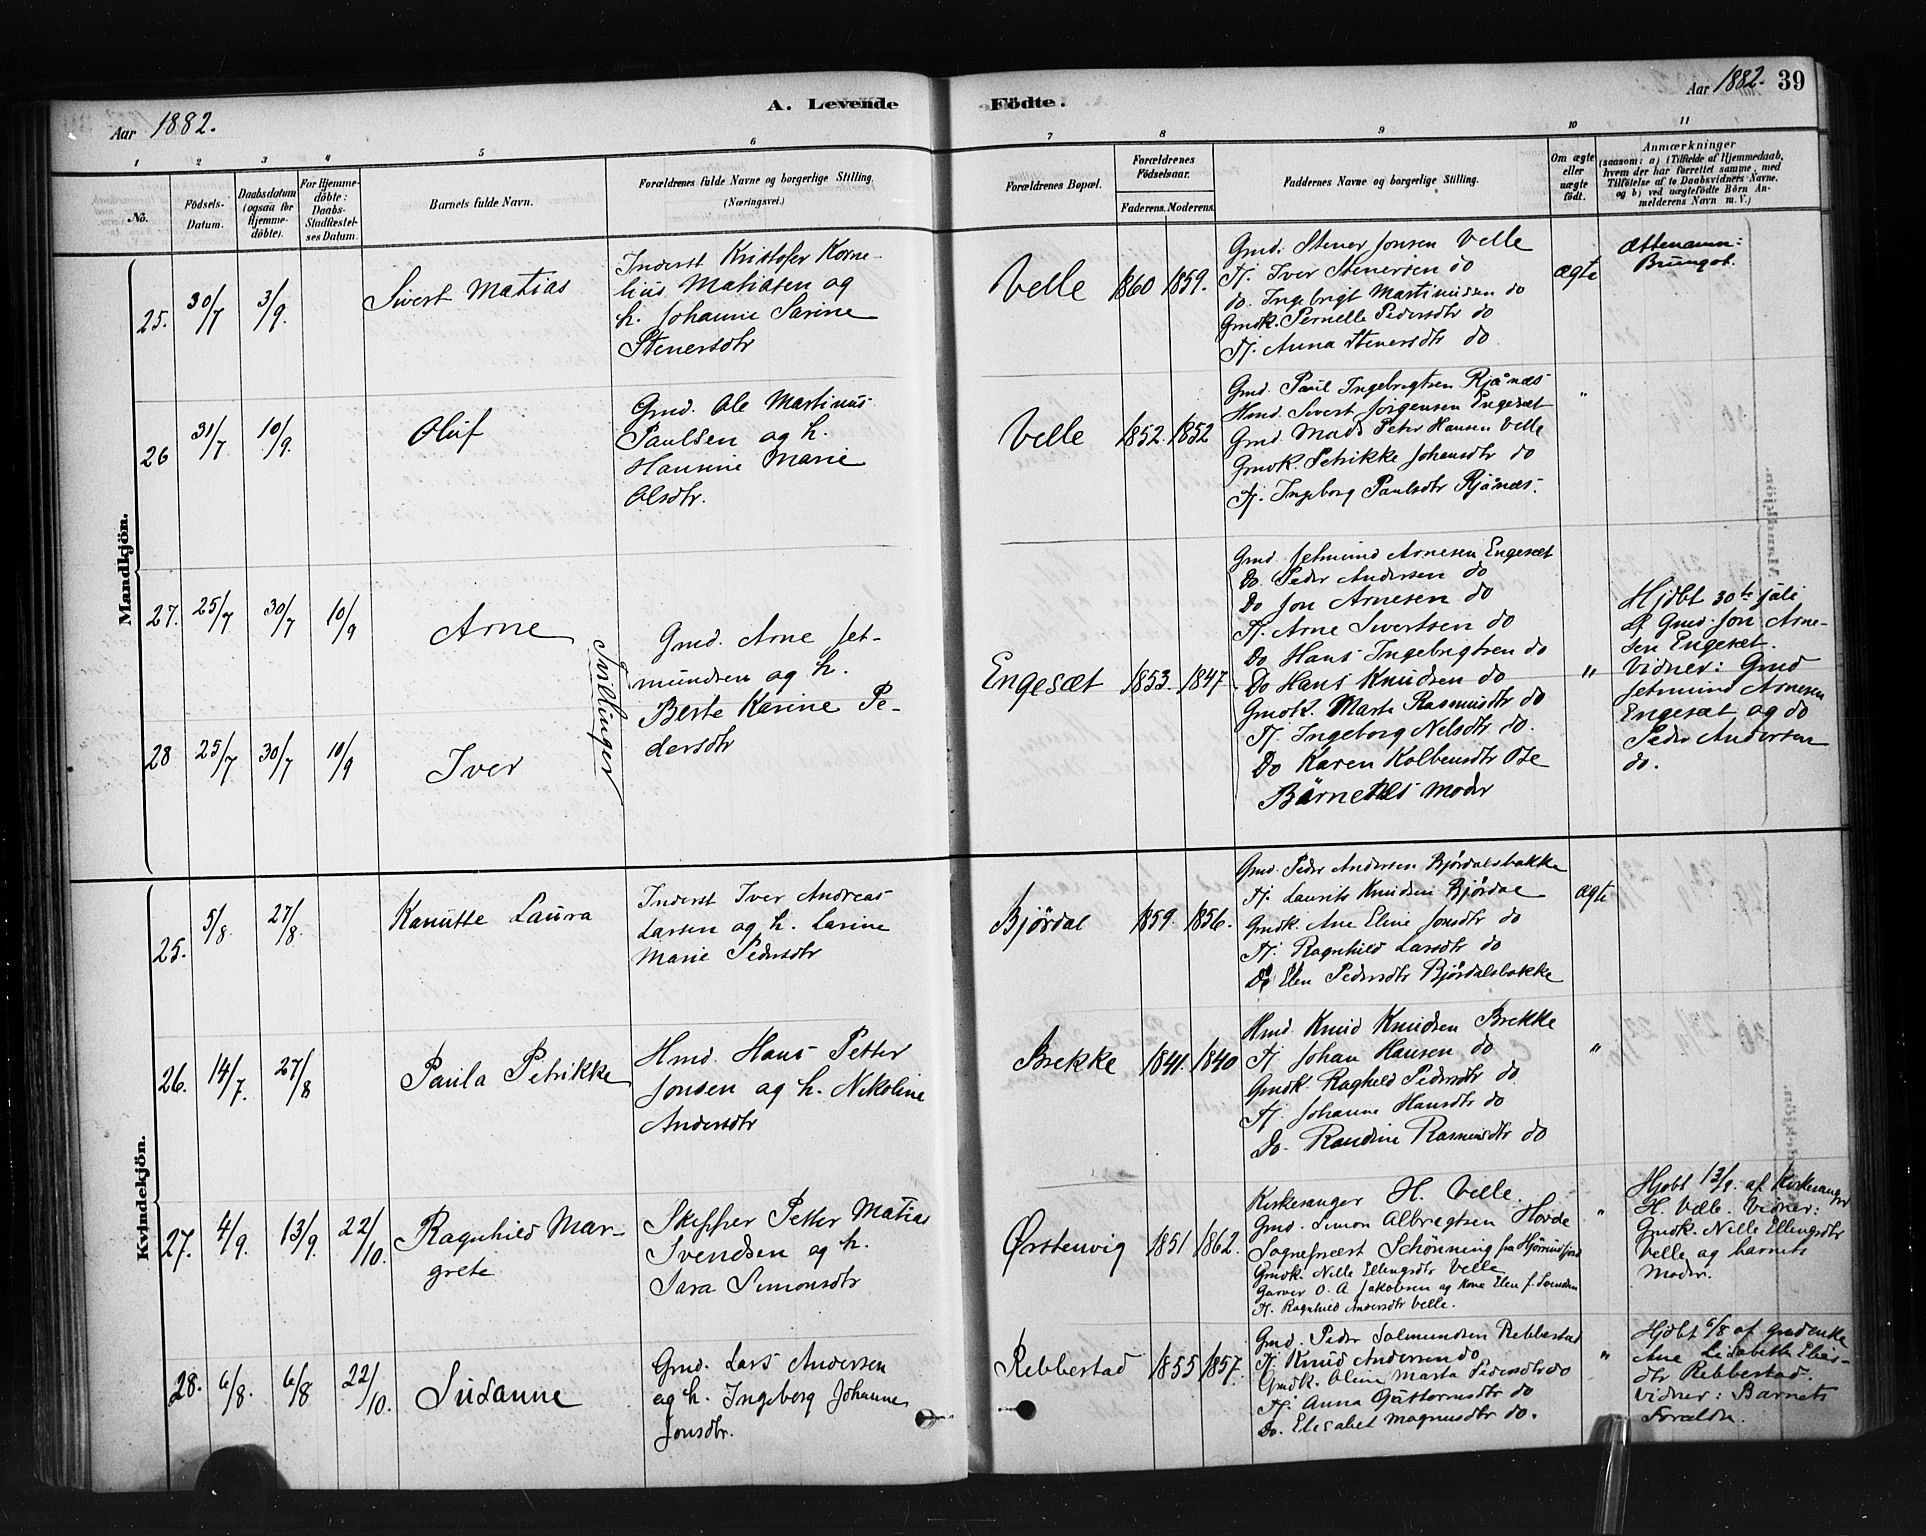 Aar 1882.
A. Levende Födte.
Aar 1882. 39
1 2 3 4 5 6 7 8 9 10 11
No.
Födsels-
Datum.
Daabsdatum
(ogsaa for
Hjemme-
döbte).
For Hjemme-
döbte:
Daabs-
Stadfæstel-
ses Datum.
Barnets fulde Navn.
Forældrenes fulde Navne og borgerlige Stilling.
(Næringsvei.)
Forældrenes Bopæl.
Forældrenes
Födselsaar.
Faderens. Moderens.
Faddernes Navne og borgerlige Stilling.
Om ægte
eller
uægte
født.
Anmærkninger
(saasom: a) i Tilfælde af Hjemmedaab,
hvem der har forrettet samme, med
Tilföielse af to Daabsvidners Navne.
og b) ved uægtefødte Börn An-
melderens Navn m. V.)
Mandkjön.
25. 30/7 3/9.
Sivert Matias
Inderst Kristofer Korne-
lius Matiasen og
h. Johanne Sarine
Stenersdtr
Velle 1860 1859.
Gmd. Stener Jonsen Velle
Tj. Iver Stenersen do
do. Ingebrigt Martinusen do
Gmdk. Pernelle Pedersdtr do
Tj. Anna Stenersdtr do
ægte
Ættenavn:
26 31/7 10/9.
Oluf
Gmd. Ole Martinus
Paulsen og h.
Hansine Marie
Olsdtr.
Velle 1852. 1852
Gmd. Paul Ingebrigtsen Rjånæs
Hmd. Sivert Jørgensen Engesæt
Gmd. Mads Peter Hansen Velle
Gmdk. Petrikke Johansdtr do
Tj. Ingeborg Paulsdtr Rjånæs.
"
27. 25/7 30/7 10/9
Arne
28 25/7 30/7 10/9
Iver
Tvillinger
Gmd. Arne Jet-
mundsen og h.
Berte Karine Pe-
dersdtr
Engesæt 1853. 1847
Gmd Jetmund Arnesen Engesæt
Do Peder Andersen do
Do Jon Arnesen do
Tj. Arne Sivertsen do
Do Hans Ingebrigtsen do
Do Hans Knudsen do
Gmdk. Marte Rasmusdtr do
Tj. Ingeborg Nelsdtr do.
Do Karen Kolbensdtr Ose
Børnenes Moder
"
Hjdbt 30te juli
af Gmd. Jon Arne-
sen Engesæt.
Vidner: Gmd
Jetmund Arnesen
Engesæt og do
Peder Andersen
do.
Kvindekjön.
25. 5/8. 27/8.
Kanutte Laura
Inderst Iver Andreas
Larsen og h. Larine
Marie Pedersdtr
Bjørdal 1859. 1856.
Gmd. Peder Andersen Bjørdalsbakke
Tj. Laurits Knudsen Bjørdal
Gmdk. Ane Eline Jonsdtr do
Tj. Ragnhild Larsdtr do
Do Elen Pedersdtr Bjørdalsbakke
ægte
26. 14/7. 27/8
Paula Petrikke
Hmd. Hans Petter
Jonsen og h. Nikoline
Andersdtr
Brekke 1841. 1840
Hmd. Knud Knudsen Brekke
Tj. Johan Hansen do
Gmdk. Raghild Pedersdtr do
Tj. Johanne Hansdtr do
Do. Randine Rasmusdtr do
"
27. 4/9. 13/9. 22/10.
Ragnhild Mar-
grete
Skipper Petter Matias
Svendsen og h.
Sara Simonsdtr
Ørstenvig 1851 1862.
Kirkesanger H. Velle.
Gmd. Simon Albregtsen Hovde
Sogneprest Schönning fra Hjørundfjord
Gmdk. Nille Ellingsdtr Velle
Garver O. A Jakobsen og Kone Elen f. Svendsen
Tj. Ragnhild Andersdtr Velle.
"
Hjdbt 13/9. af Kirkesanger
H. Velle. Vidner:
Gmdk. Nille Ellingsdtr
Velle og barnets
Moder.
28. 6/8. 6/8 22/10.
Susanne
Gmd. Lars Andersen
og h. Ingeborg Johanne
Jonsdtr.
Rebbestad 1855 1857.
Gmd. Peder Salmundsen Rebbestad
Tj. Knud Andersen do
Gmdk. Oline Marta Pedersdtr do
Tj. Anna Guttormsdtr do
Do. Elesabet Magnusdtr do.
"
Hjdbt 6/8 af Gmdenke
Ane Lisabeth Elias-
dtr Rebbestad.
Vidner: Barnets
Foraldre.